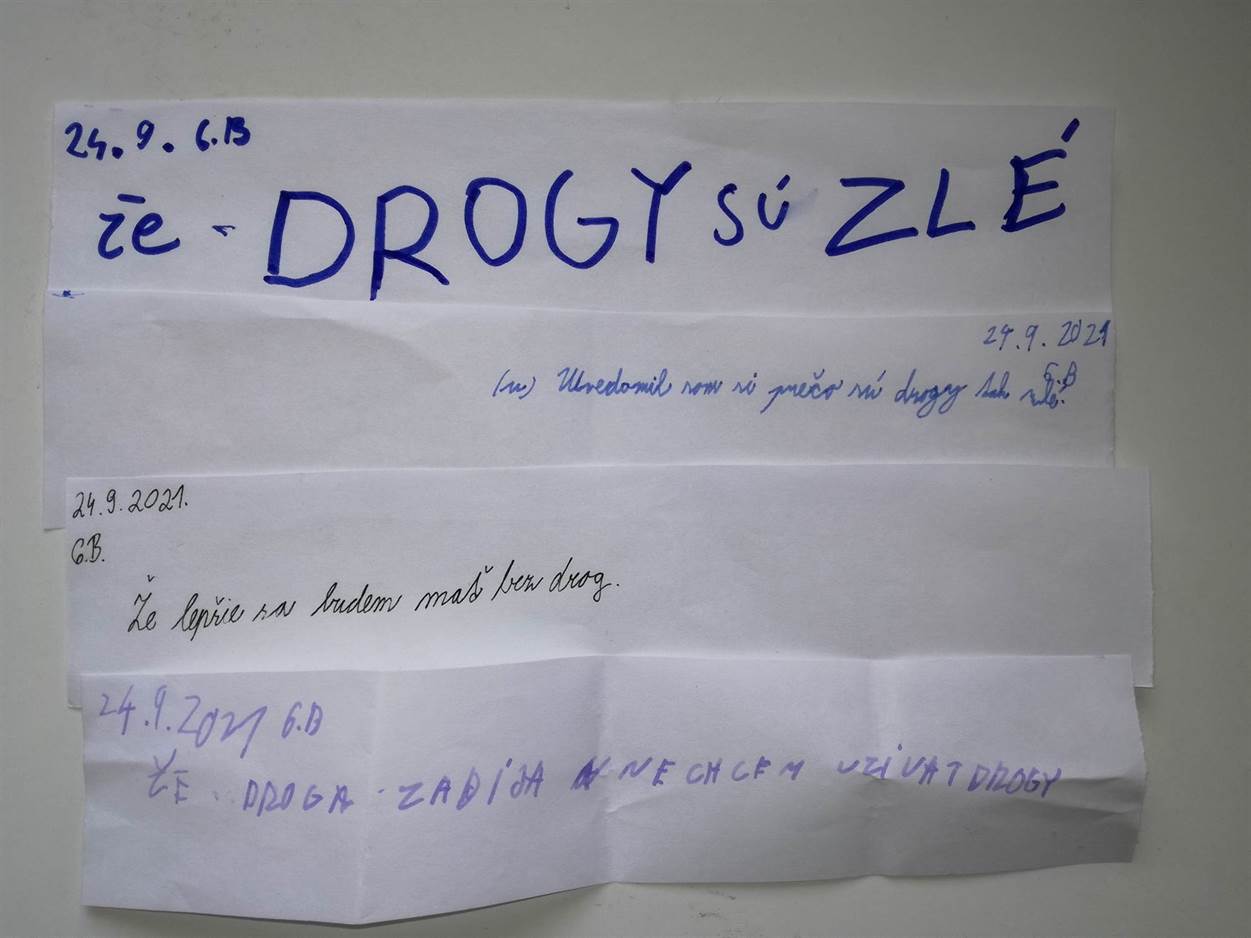 24. 9. 6.B
že - DROGY SÚ ZLÉ
24. 9. 2021
6.B
(u) Uvedomil som si prečo sú drogy tak zlé.
24.9.2021.
6.B.
Že lepšie sa budem mať bez drog.
24.9.2021 6.B
ŽE DROGA ZABÍJA NECHCEM UZÍVAT DROGY